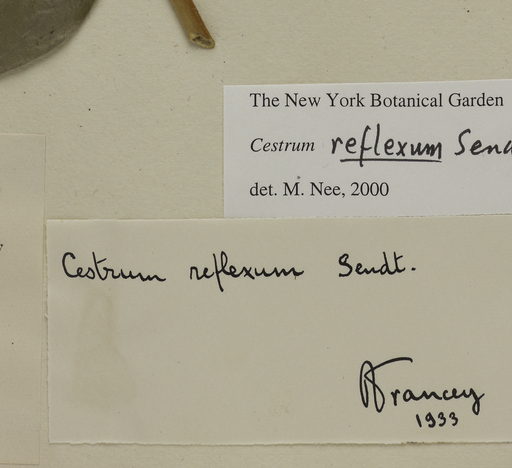 The New York Botanical Garden
Cestrum reflexum Send
det. M. Nee, 2000
Cestrum reflexum Sendt.
Francey
1933